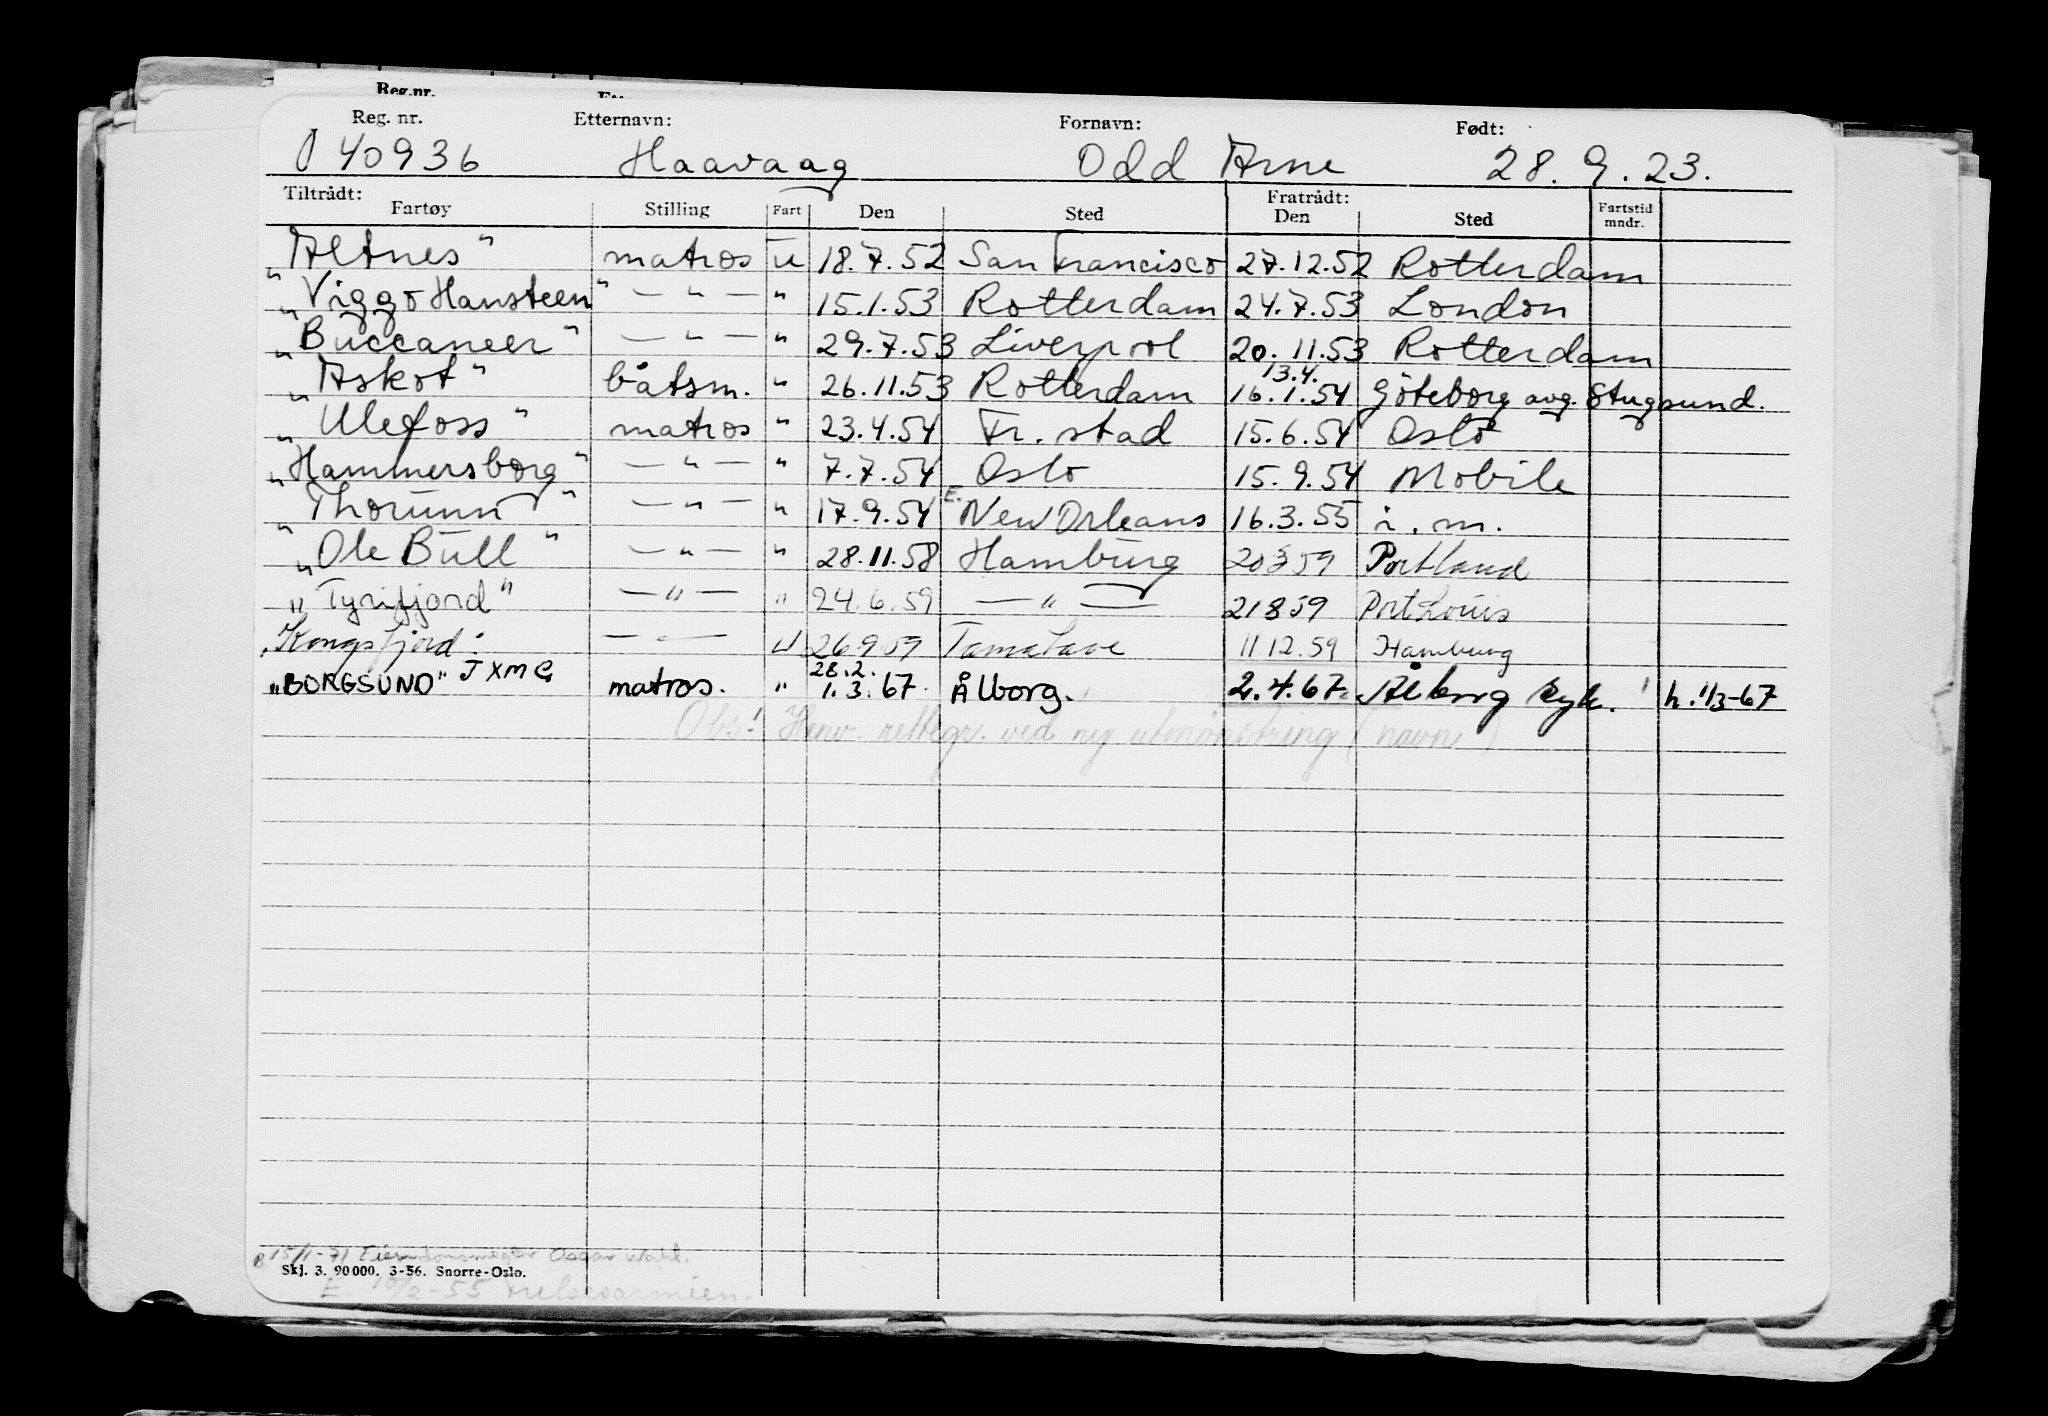 Reg.nr.
Reg. nr. Etternavn: Fornavn: Født:
040936 Haavaag Odd Arne 28.9.23.
Tiltrådt: Fratrådt:
Fartøy Stilling Fart Den Sted Den Sted Fartstid mndr.
"Altnes" matros u 18.7.52 San Francisco 27.12.52 Rotterdam
"Viggo Hansteen" — " — " 15.1.53 Rotterdam 24.7.53 London
"Buccaneer" — " — " 29.7.53 Liverpool 20.11.53 Rotterdam
13.4.
"Askot" båtsm. " 26.11.53 Rotterdam 16.1.54 Göteborg avg. Stugsund.
"Ulefoss" matros " 23.4.54 Fr. stad 15.6.54 Oslo
"Hammersborg" — " — " 7.7.54 Oslo 15.9.54 Mobile
"Thorunn" — " — " 17.9.54 E. New Orleans 16.3.55 i. m.
"Ole Bull" — " — " 28.11.58 Hamburg 20 3 59 Portland
"Tyrifjord" — " — " 24.6.59 — " — 21 8 59 Port Louis
"Kongsfjord" — " — u 26 9 59 Tamatave 11 12.59 Hamburg
28.2.
"BORGSUND" JXMC matros. " 1.3.67. Ålborg. 2.4.67 Ålborg syk. h. 1/3-67
Obs! Henv. rettegr. ved ny utmønstring (navn)
15/1-71 Oscar Wahl.
Skj. 3. 90000. 3-56. Snorre-Oslo.
E 10/2-55 Frelsesarmeen.